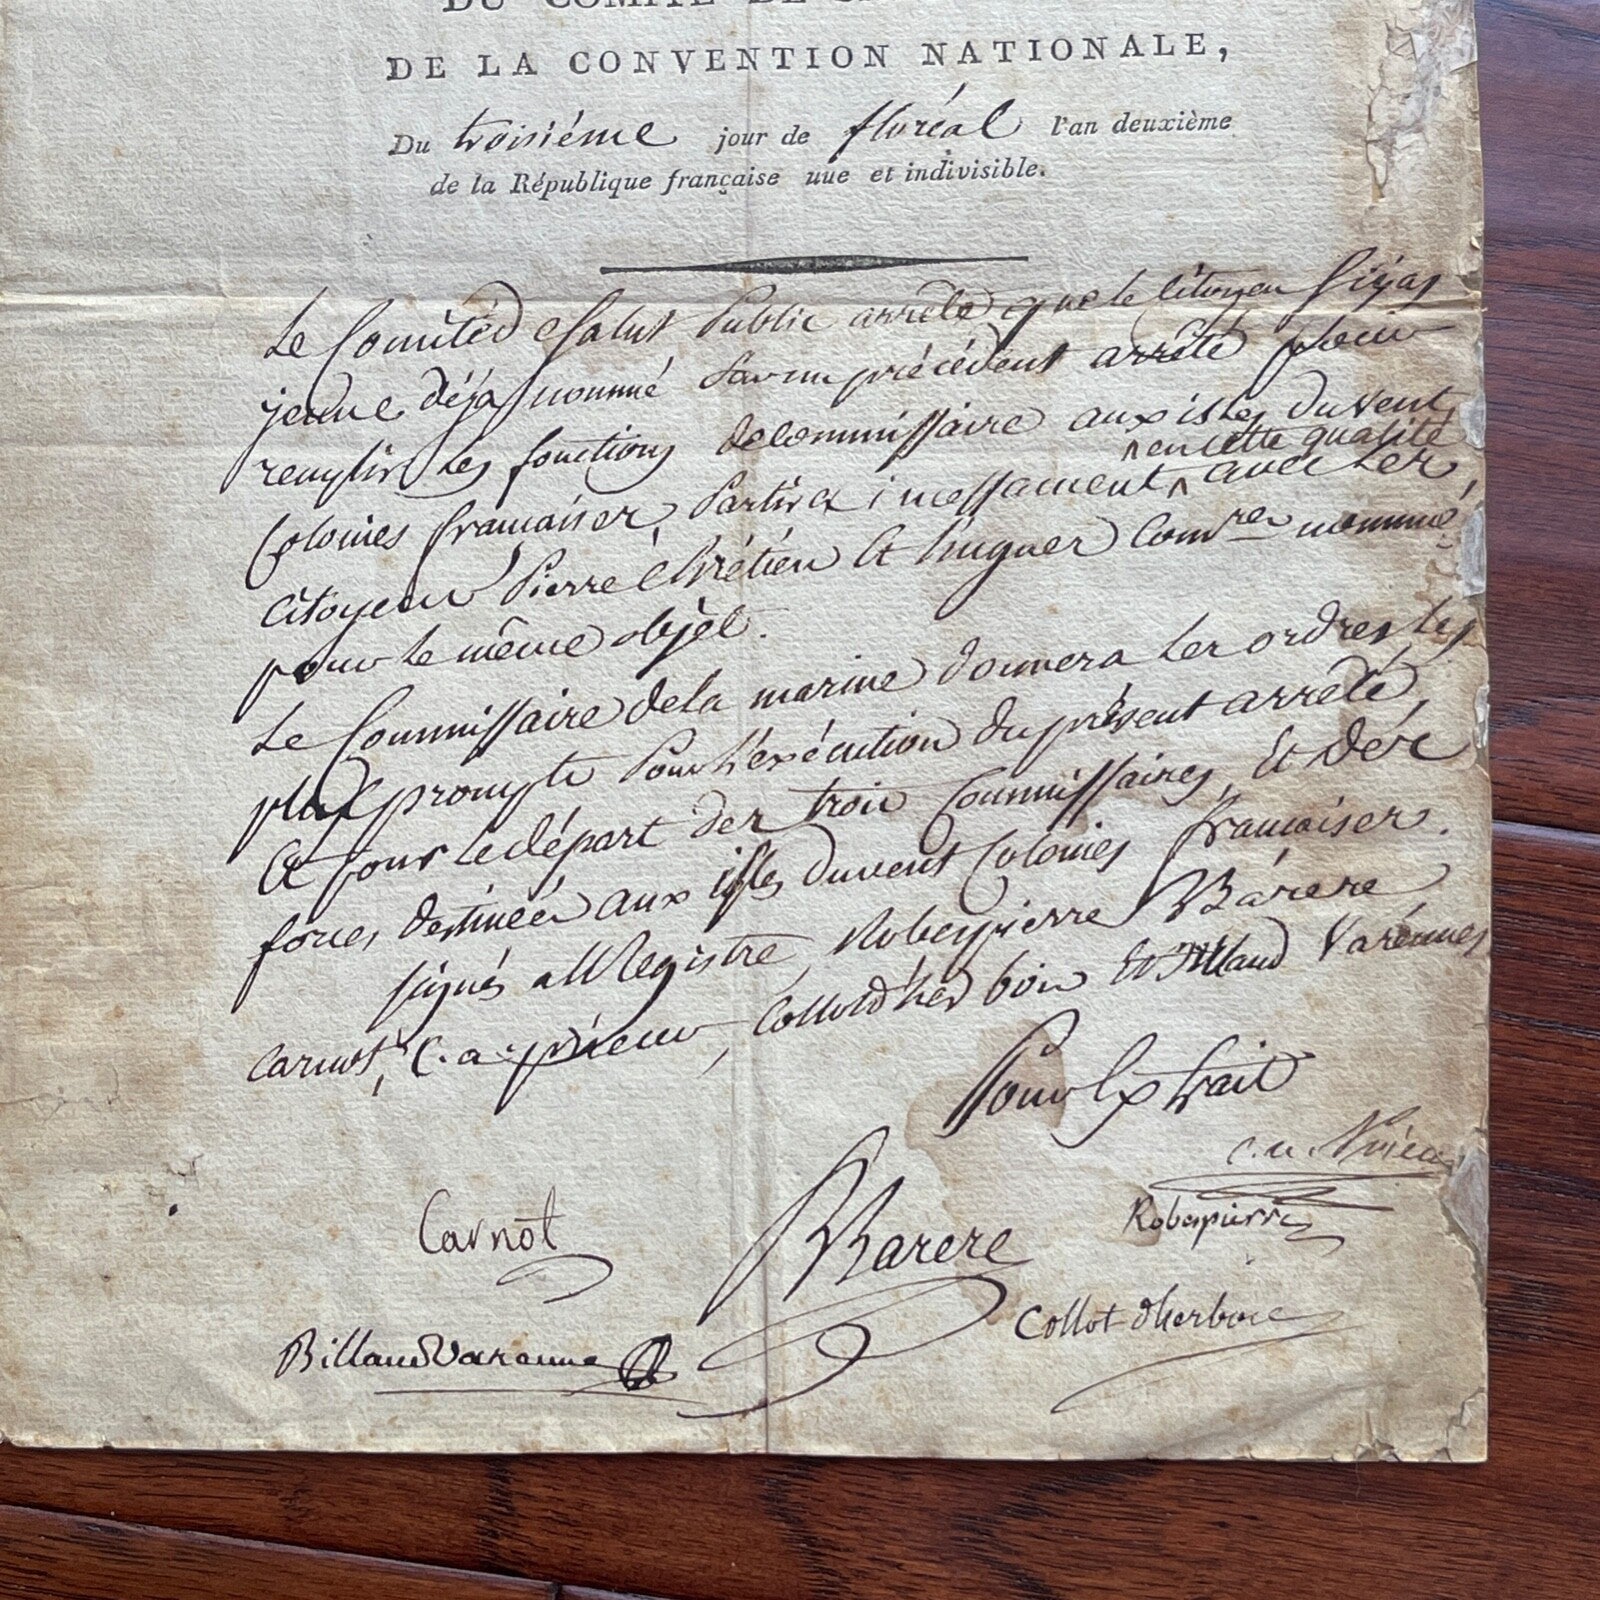 DU COMITÉ DE
DE LA CONVENTION NATIONALE,
Du troisiéme jour de floréal l'an deuxième
de la République française uue et indivisible.
Le Comité d Salut Public arrête que le Citoyen Sijas
jeune déja nommé par un précédent arrêté pour
remplir les fonctions de Commissaire aux isles du vent,
en cette qualité
Colonies françaises, Partira incessament ^ avec les
Citoyens Pierre Chrétien et hugues Comres nommés
pour le même objèt.
Le Commissaire de la marine donnera les ordres les
plus prompts Pour l'exécution du présent arrêté,
et pour le départ des trois Commissaires, Et des
forces destinées aux isles du vent Colonies françaises.
signés au Registre, Robespierre, Barere
Carnot, C. a. prieur, Collot d'herbois Et Billaud Varénnes
Pour Extrait
C. a. Prieur
Robespierre
Carnot
Barere
Collot dherbois
Billaud Varenne